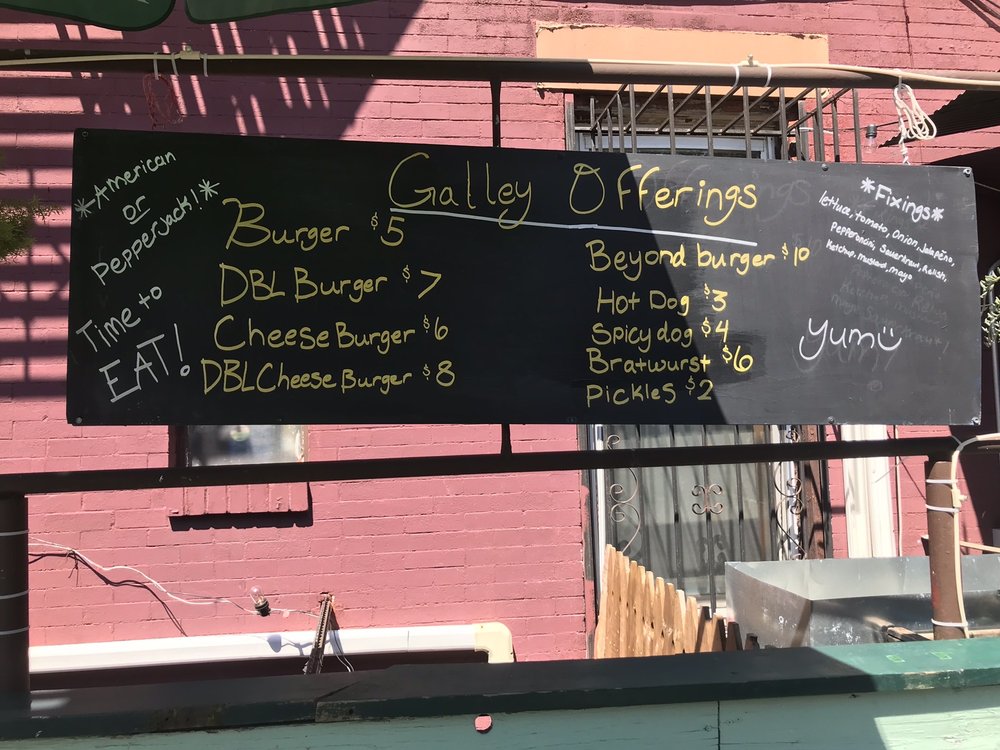 *American
or
pepperjack!*
Time to
EAT!
Galley Offerings
Burger $5
DBL Burger $7
Cheese Burger $6
DBL Cheese Burger $8
Beyond burger $10
Hot Dog $3
Spicy dog $4
Bratwurst $6
Pickles $2
*Fixings*
lettuce, tomato, Onion, Jalapeño,
Pepperoncini, Sauerkraut, Relish,
Ketchup, mustard, mayo
yum